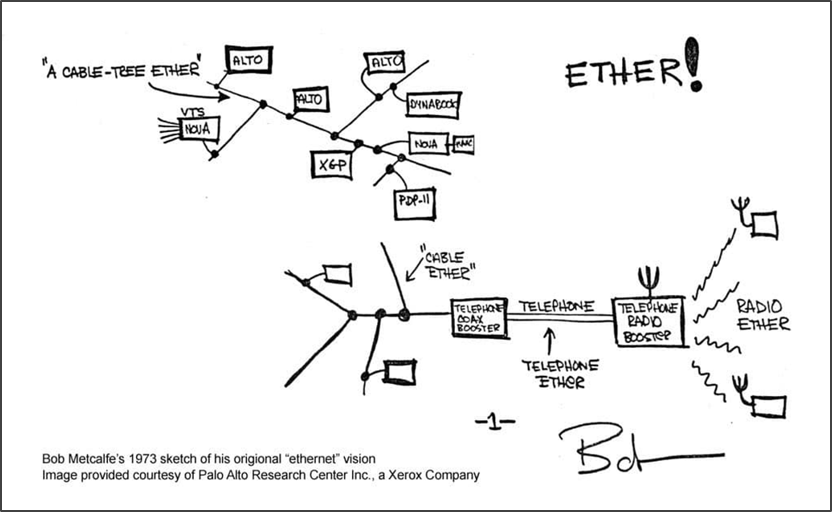 "A CABLE-TREE ETHER"
ALTO
ALTO
ETHER!
ALTO
DYNABOOK
VTS
NOVA
NOVA
XGP
PDP-11
"CABLE
ETHER"
TELEPHONE
COAX
BOOSTER
TELEPHONE
TELEPHONE
ETHER
TELEPHONE
RADIO
BOOSTER
RADIO
ETHER
-1-
Bob Metcalfe's 1973 sketch of his origional "ethernet" vision
Image provided courtesy of Palo Alto Research Center Inc., a Xerox Company